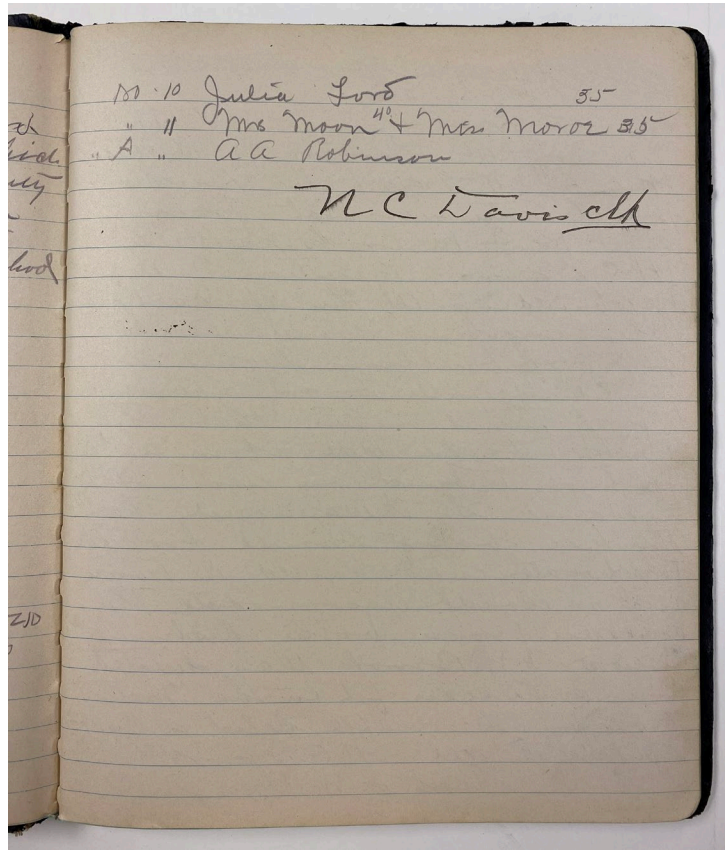 No. 10 Julia Ford 35
" 11 Mrs Moon 40 & Mrs Moroe 35
" A " A A Robinson
N C Davis clk